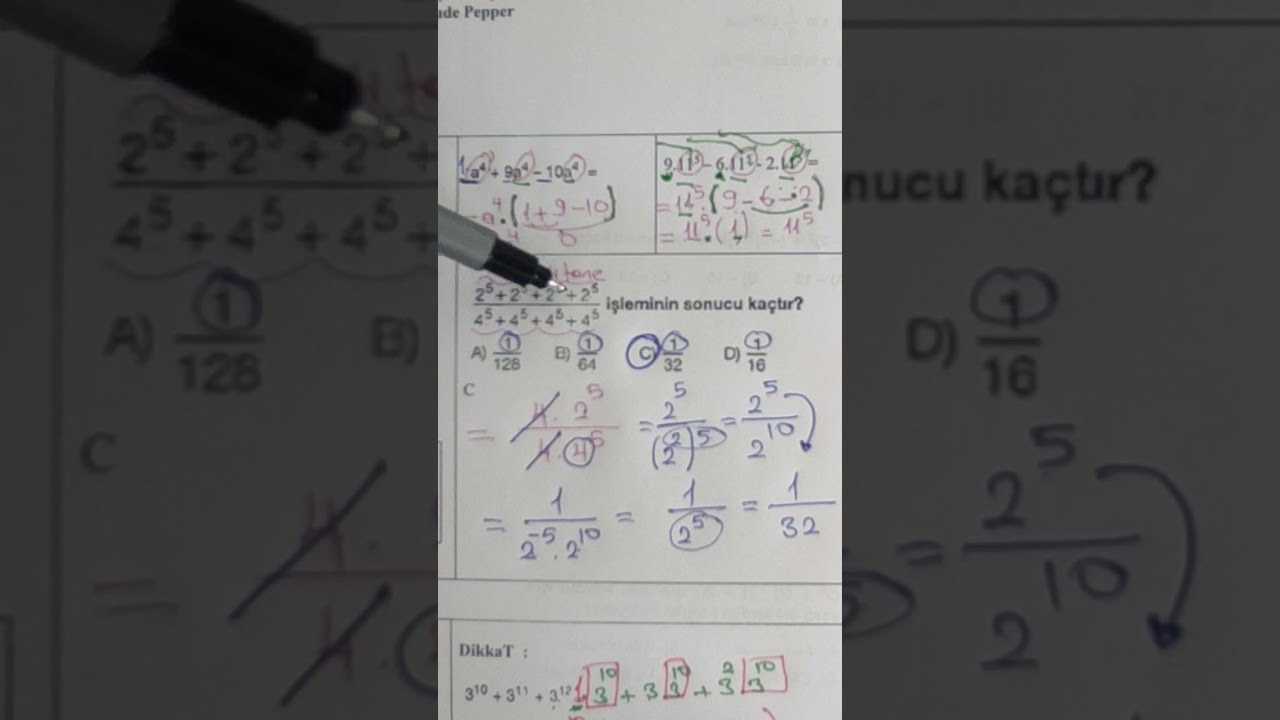 ude Pepper
1.a⁴ + 9a⁴ - 10a⁴ =
a⁴.(1+9-10)
9.11⁵ - 6.11⁵ - 2.11⁵ =
= 11⁵.(9-6-2)
= 11⁵.(1) = 11⁵
tane
2⁵ + 2⁵ + 2⁵ + 2⁵
4⁵ + 4⁵ + 4⁵ + 4⁵
işleminin sonucu kaçtır?
A) 1/128 B) 1/64 C) 1/32 D) 1/16
C
= 4.2⁵/4.4⁵ = 2⁵/(2²)⁵ = 2⁵/2¹⁰
= 1/2⁻⁵.2¹⁰ = 1/2⁵ = 1/32
DikkaT :
3¹⁰ + 3¹¹ + 3.¹² 1.3¹⁰ + 3 3¹⁰ + 3² 3¹⁰